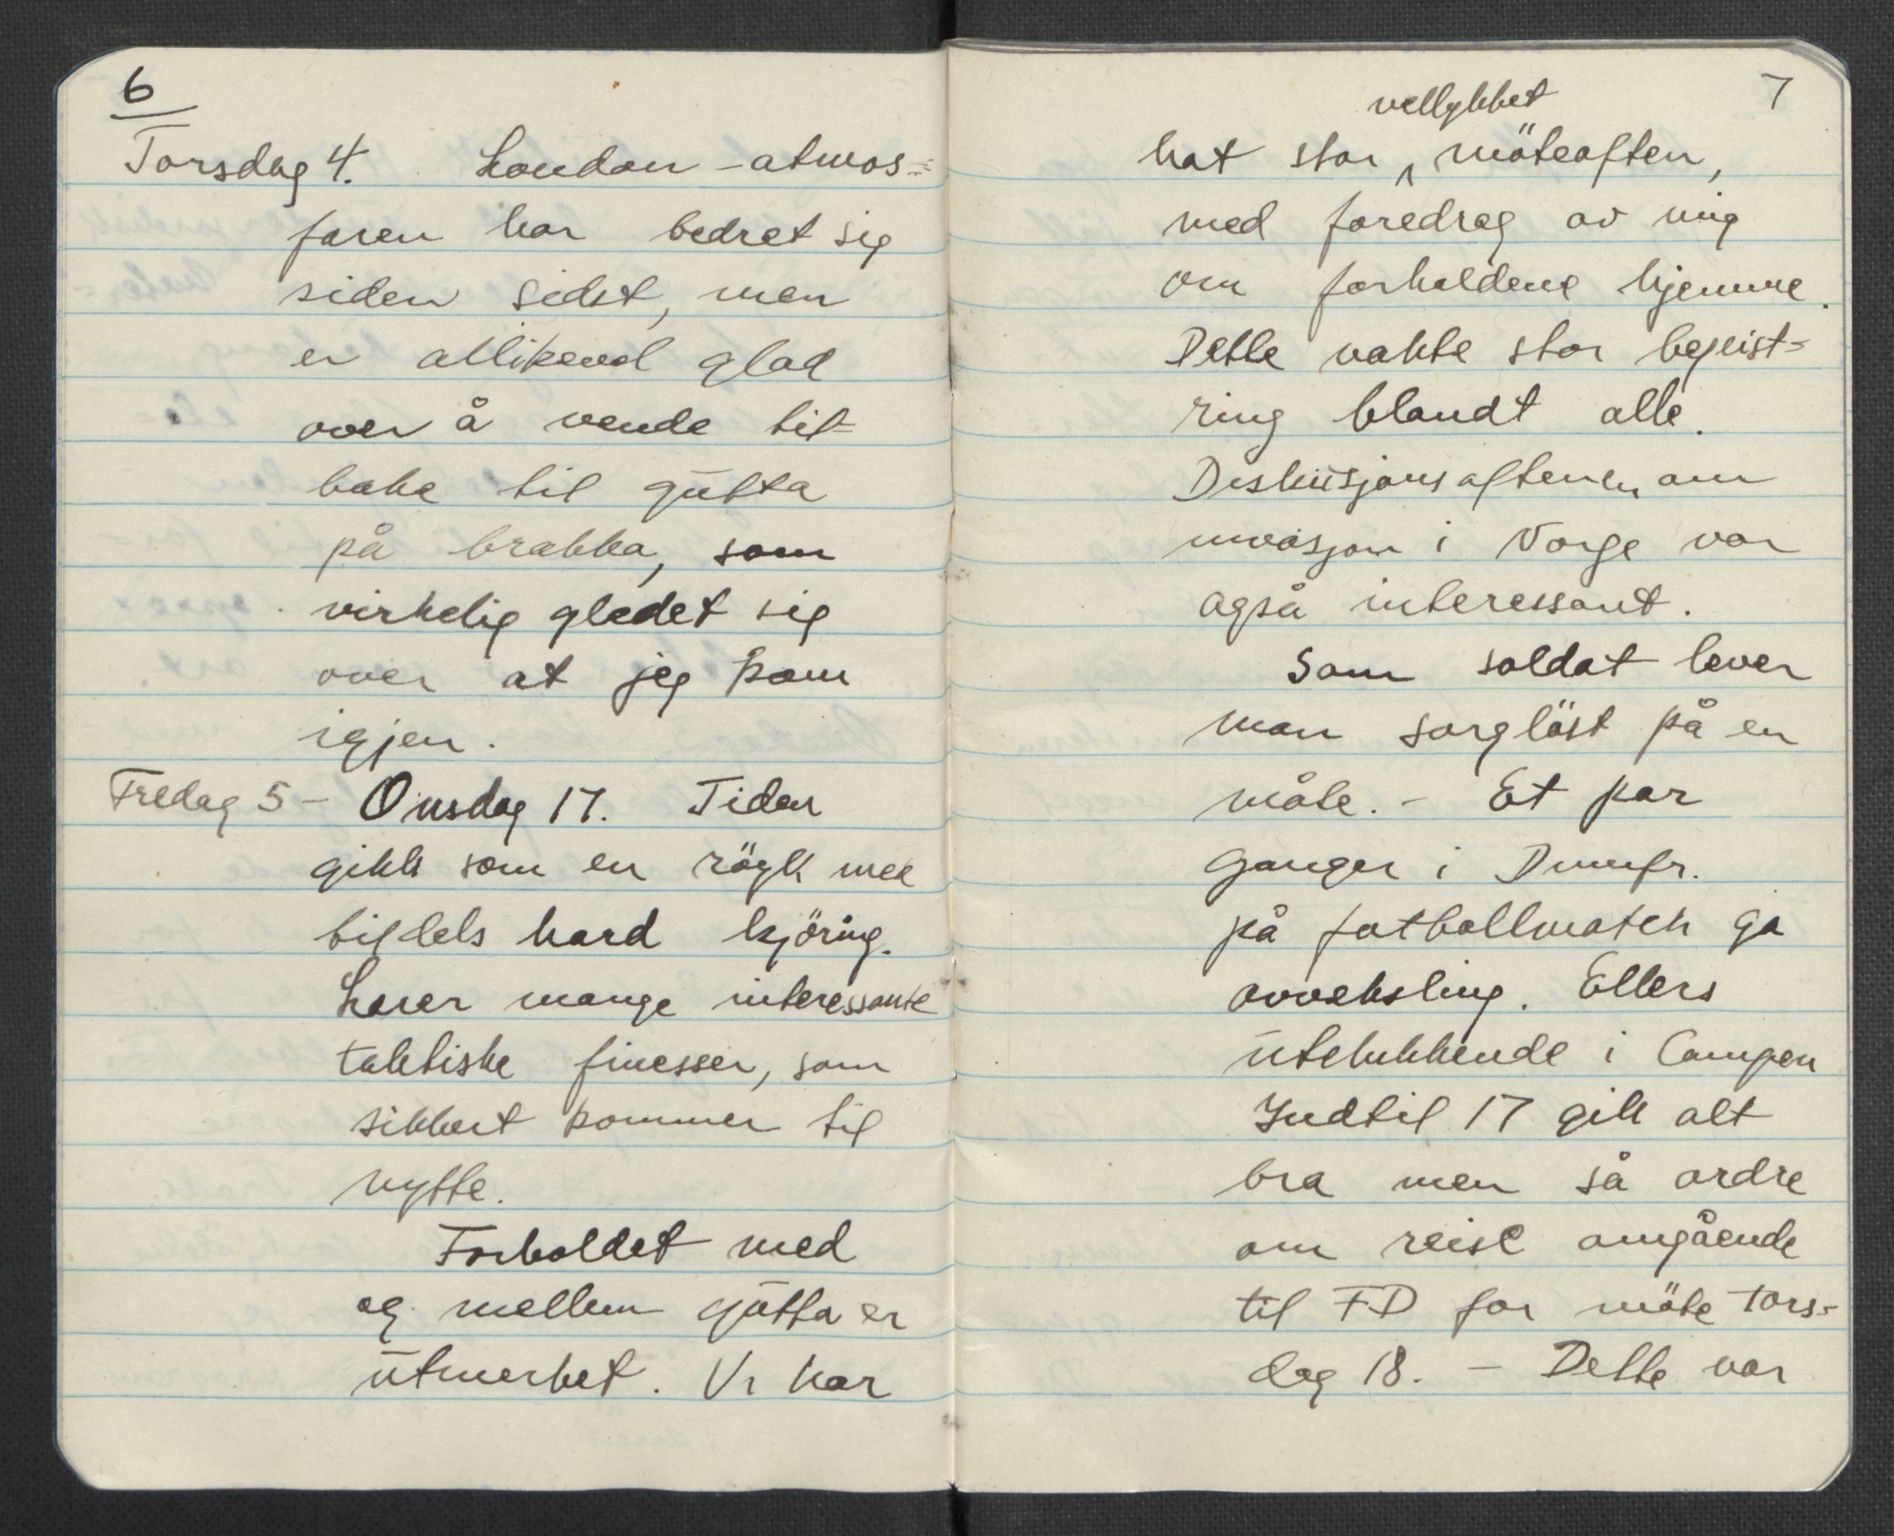 6
Torsdag 4. London-atmos=
færen har bedret sig
siden sidst, men
er allikevel glad
over å vende til=
bake til gutta
på brakka, som
virkelig gledet sig
over at jeg kom
igjen.
Fredag 5 – Onsdag 17. Tiden
gikk som en röyk med
tildels hard kjöring.
Lærer mange interessante
taktiske finesser, som
sikkert kommer til
nytte.
Forholdet med
og mellem gutta er
utmerket. Vi har
7
vellykket
hat stor möteaften,
med foredrag av mig
om forholdene hjemme.
Dette vakte stor begeist=
ring blandt alle.
Diskusjonsaftenen om
invasjon i Norge var
også interessant.
Som soldat lever
man sorglöst på en
måte. – Et par
ganger i Dumfr.
på fotballmatch ga
avveksling. Ellers
utelukkende i Campen
Indtil 17 gikk alt
bra men så ordre
om reise omgående
til FD for möte tors=
dag 18. – Dette var